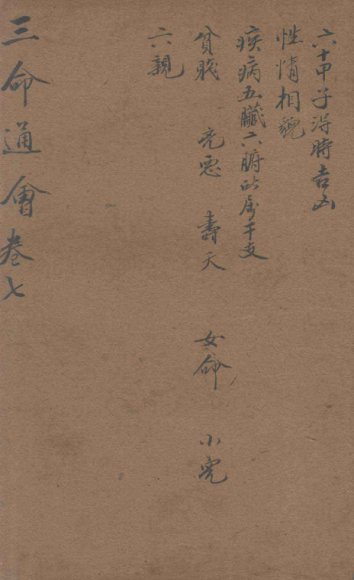 六十甲子得時吉凶
性情相貌
疾病五臟六腑所屬干支
貧賤 兇惡 壽夭 女命 小兒
六親
三命通會卷七